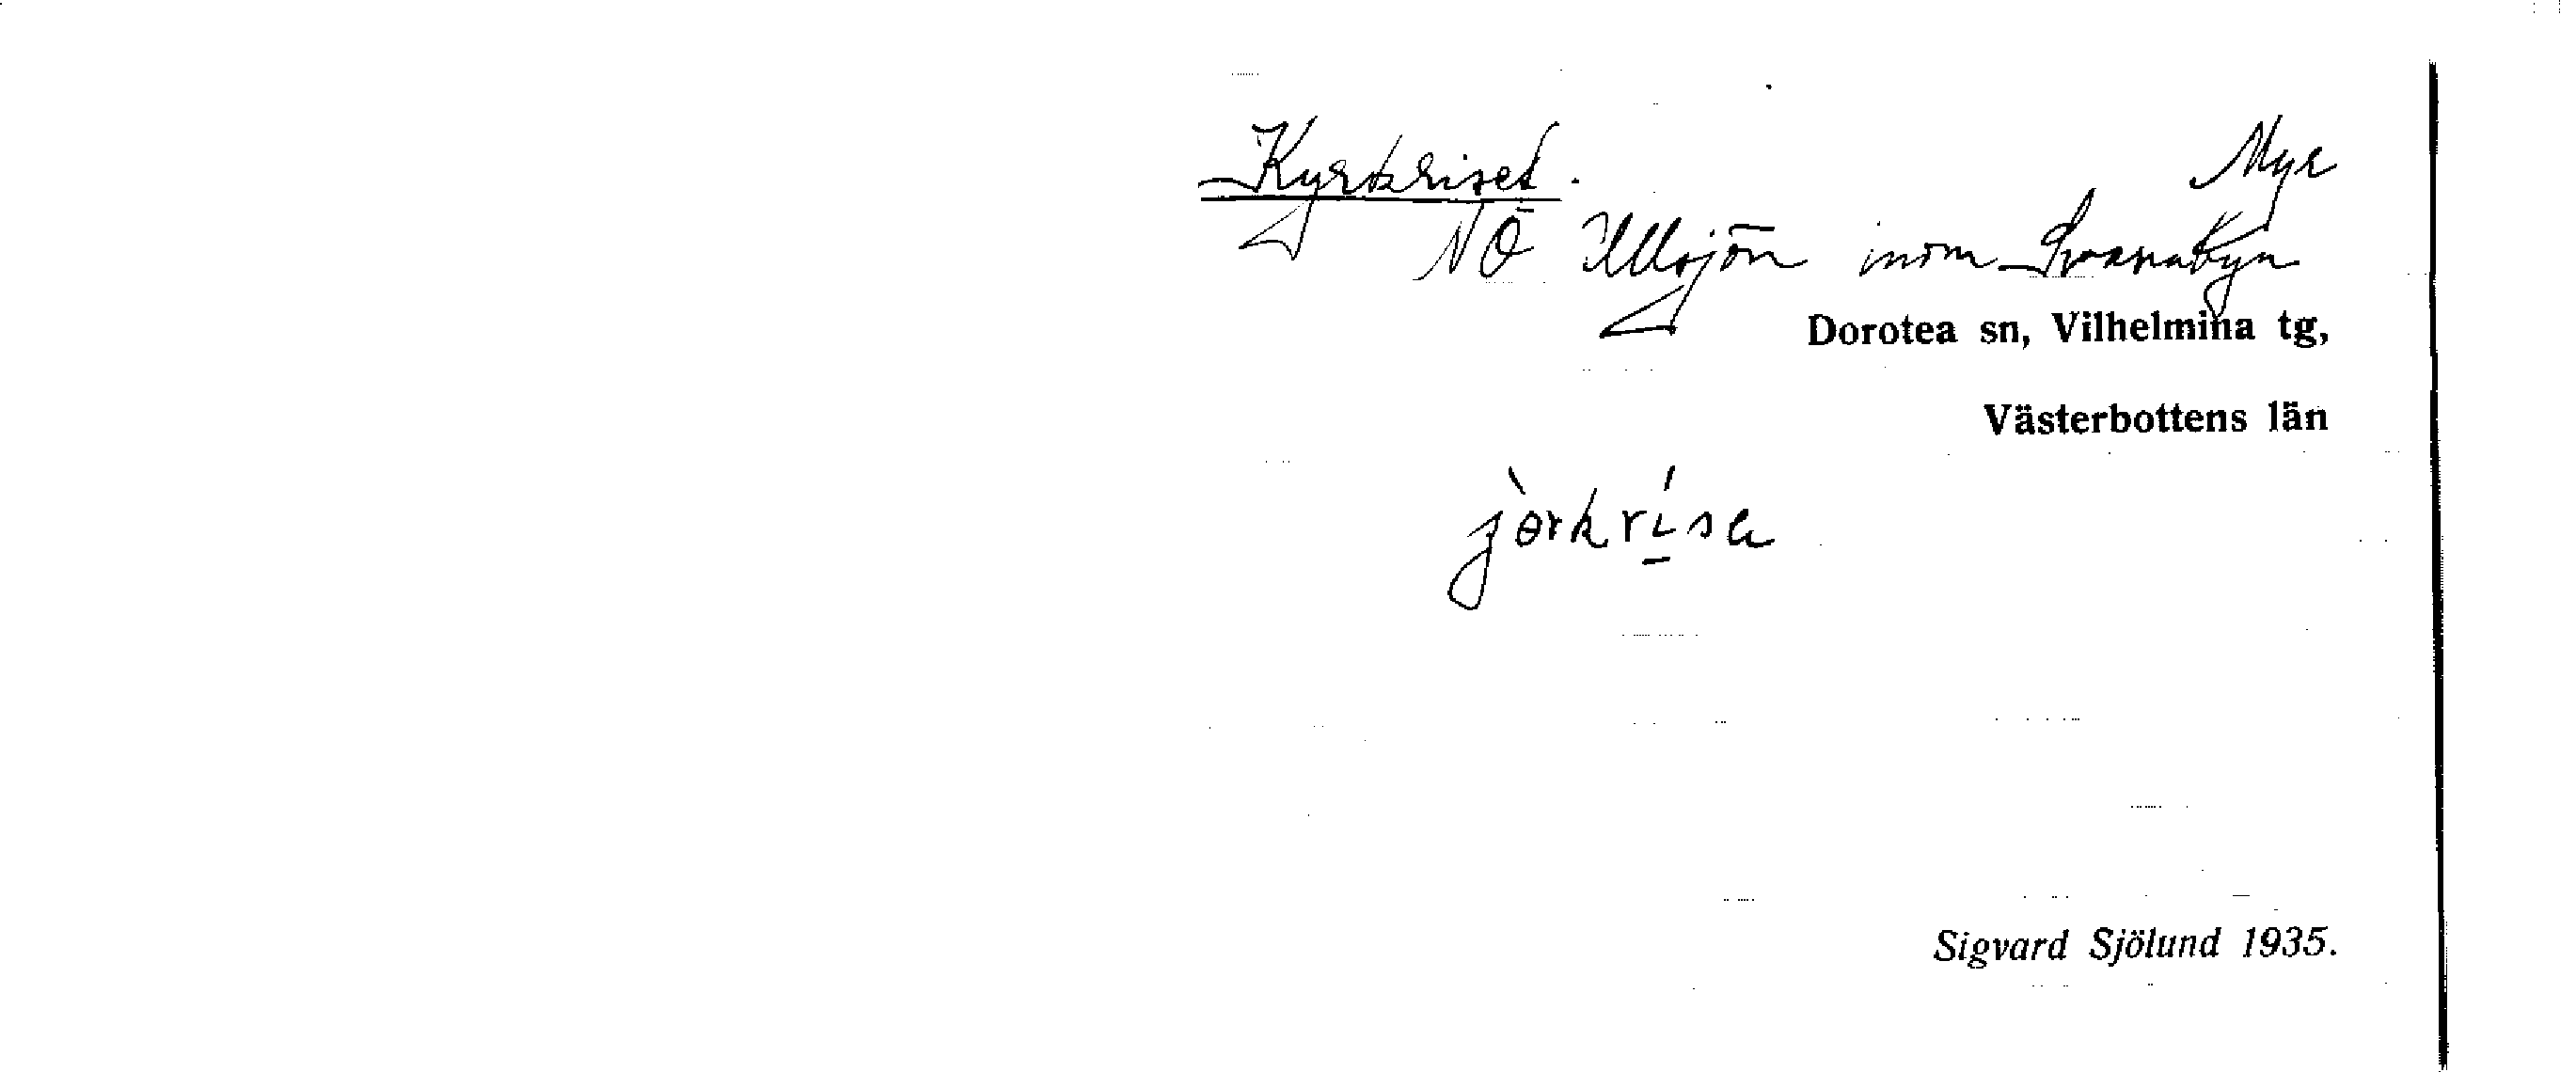 Kyrkriset. Myr
NÖ Illsjön inom Svanabyn
Dorotea sn, Vilhelmina tg,
Västerbottens län
Sigvard Sjölund 1935.